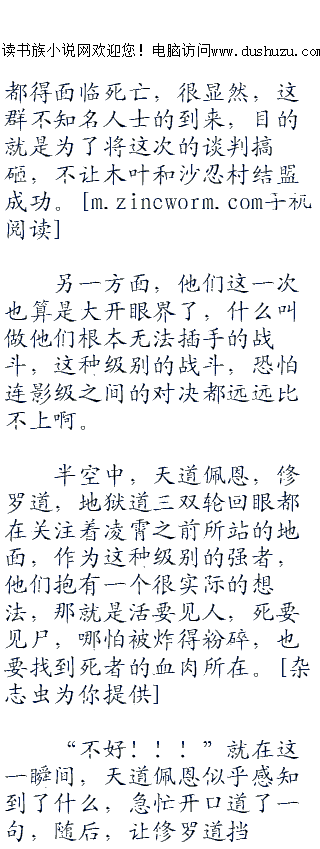 读书族小说网欢迎您！电脑访问www.dushuzu.com
都得面临死亡，很显然，这
群不知名人士的到来，目的
就是为了将这次的谈判搞
砸，不让木叶和沙忍村结盟
成功。[m.zincworm.com手机
阅读]
另一方面，他们这一次
也算是大开眼界了，什么叫
做他们根本无法插手的战
斗，这种级别的战斗，恐怕
连影级之间的对决都远远比
不上啊。
半空中，天道佩恩，修
罗道，地狱道三双轮回眼都
在关注着凌霄之前所站的地
面，作为这种级别的强者，
他们抱有一个很实际的想
法，那就是活要见人，死要
见尸，哪怕被炸得粉碎，也
要找到死者的血肉所在。[杂
志虫为你提供]
“不好！！！”就在这
一瞬间，天道佩恩似乎感知
到了什么，急忙开口道了一
句，随后，让修罗道挡